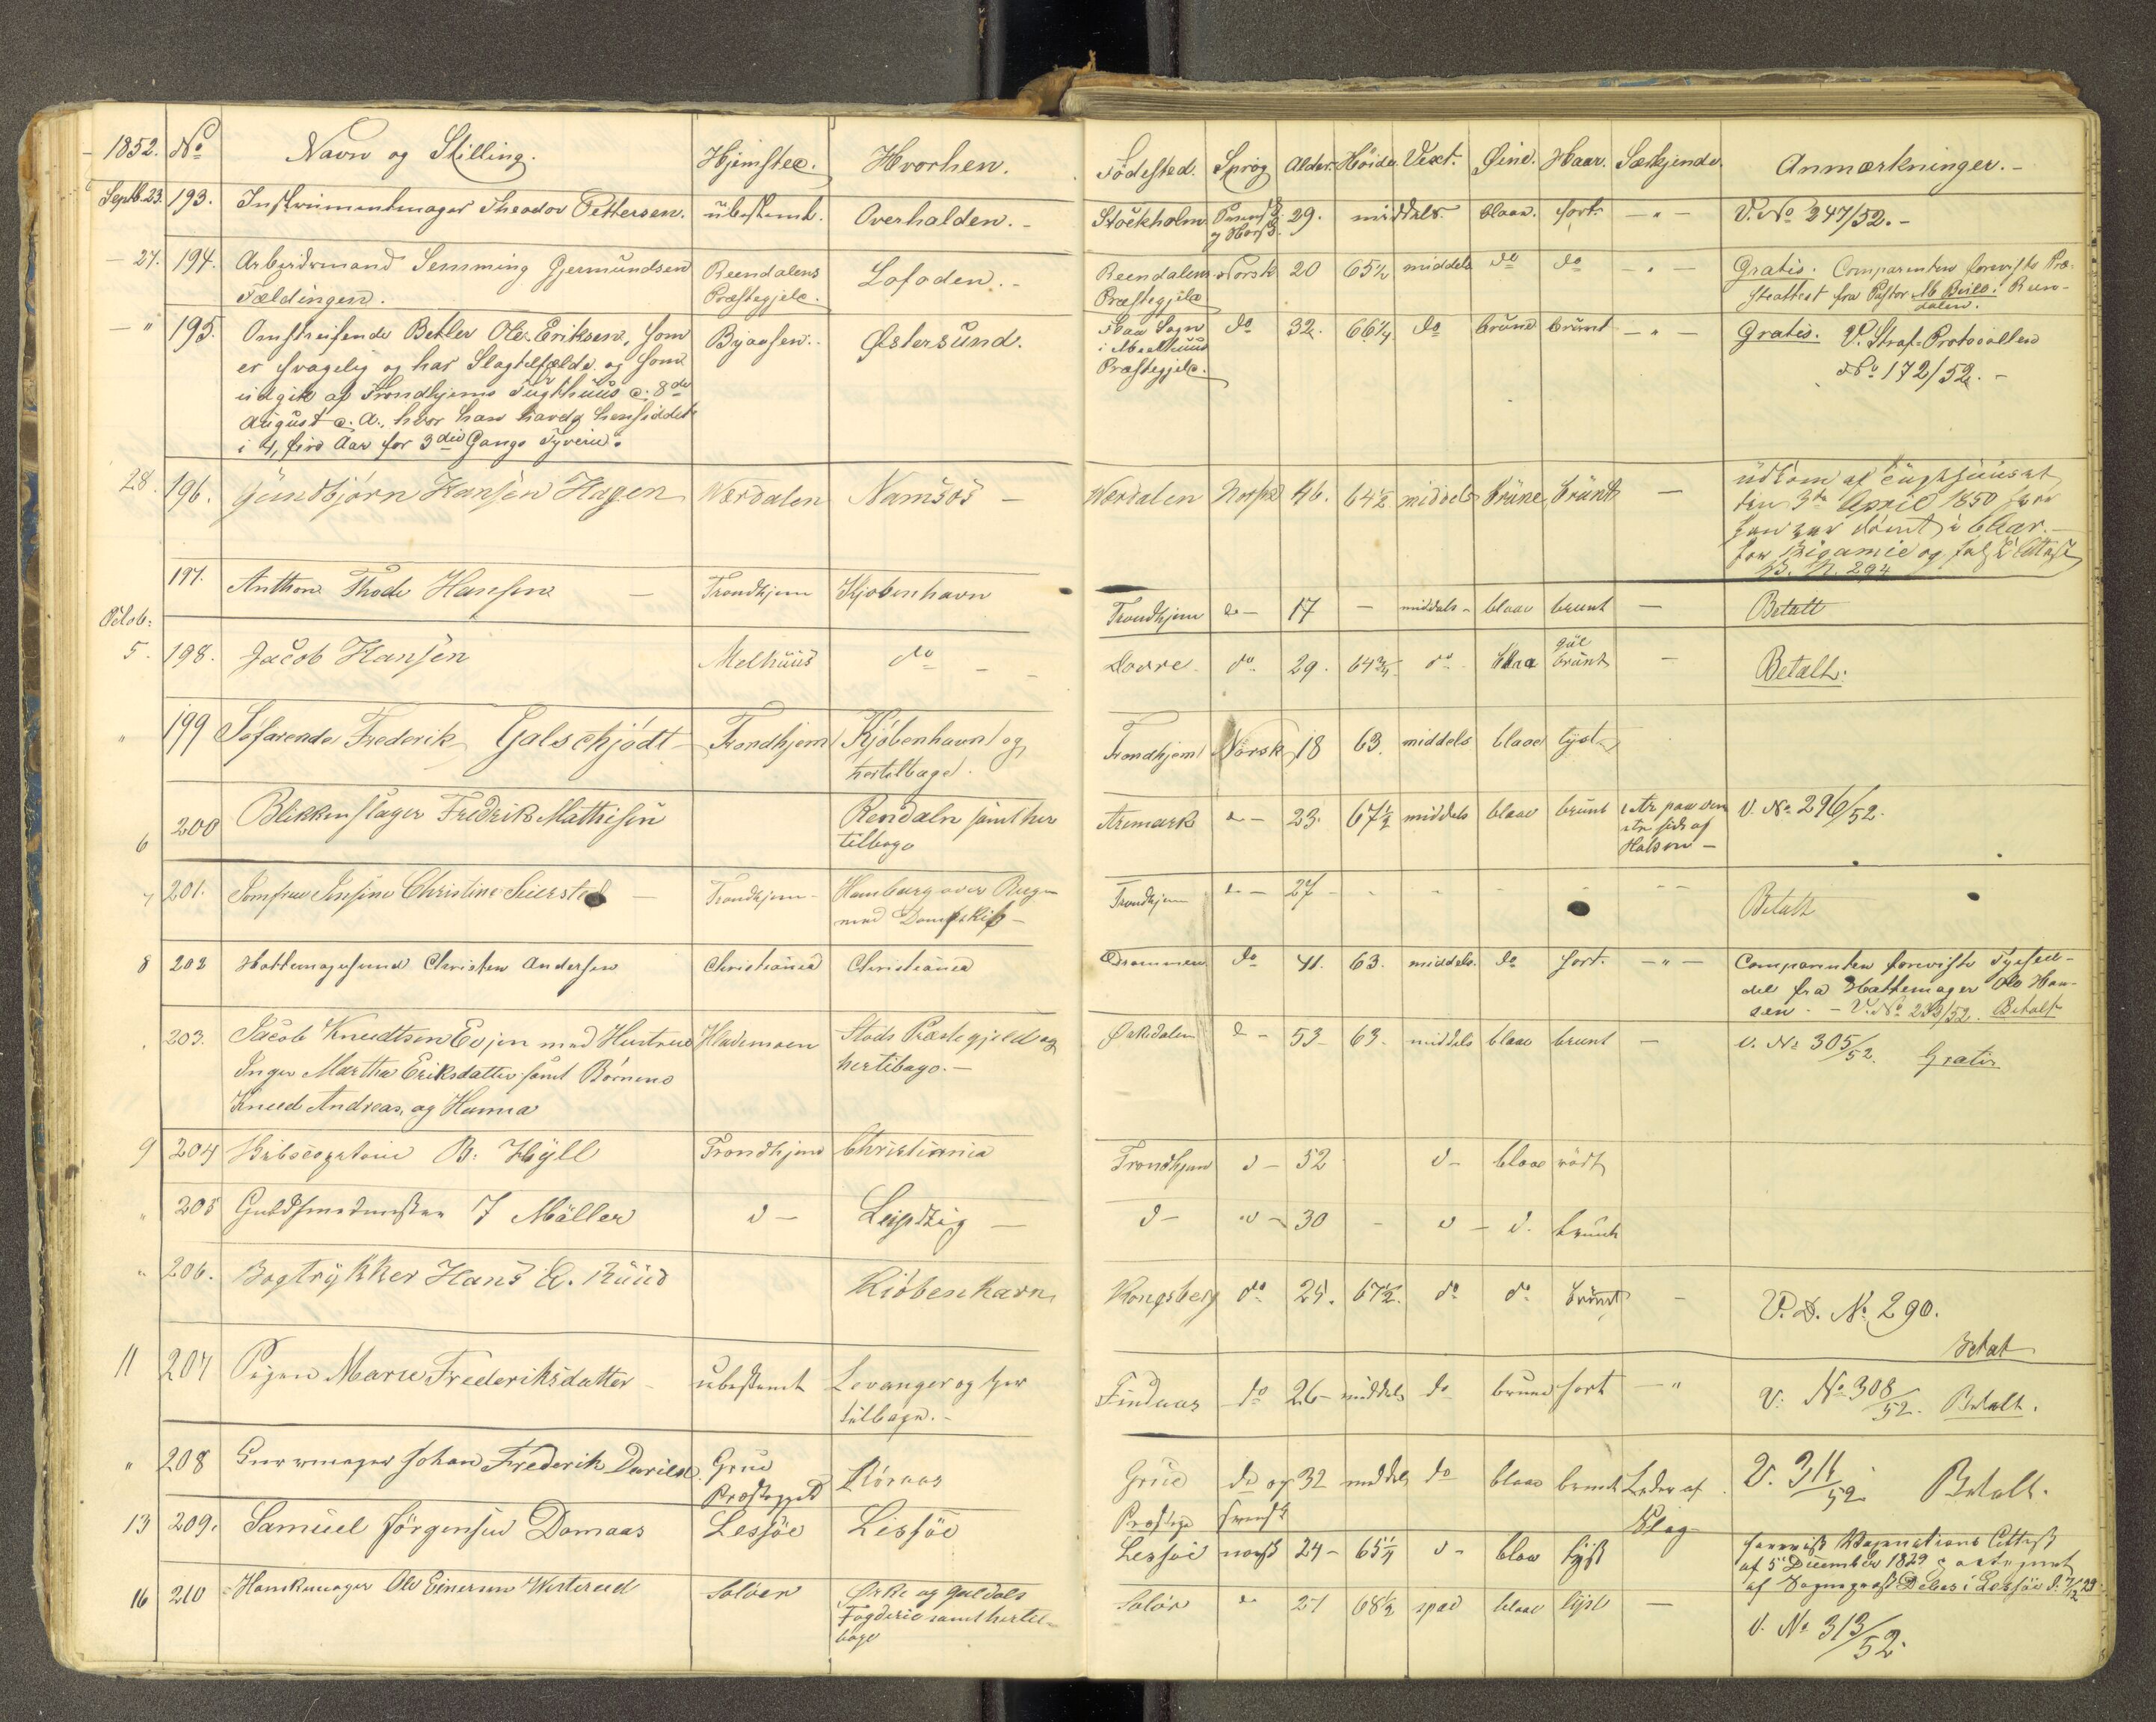 1852. No Navn og Stilling. Hjemsted. Hvorhen. Fødested. Sprog Alder. Høide. Vext. Øine. Haar. Særkjende. Anmærkninger. -
Septb. 23. 193. Instrumentmager Theodor Pettersen. ubestemt. Overhalden. - Stockholm og Norsk. 29. middels. blaae. sort. - " - V. No 247/52. -
- 27. 194. Arbeidsmand Semming Gjermundsen Reendalens Lofoden. - Reendalens Norsk 20 65½ middels do do - " - Gratis. Comparenten foreviste Præ-
Fældingen. Præstegjeld. Præstegjeld steattest fra Pastor Reen-
dalen.
- " 195. Omstreifende Betler Ole Eriksen, som Byaasen. Østersund. Flaa Sogn do 32. 66¼ do brune brunt - " - Gratis. V. Straf-Protocollen
er svagelig og har Slagtilfælde og som i Melhuus No 172/52. -
udgik af Trondhjems Tugthuus d. 8de Præstegjeld.
August d. A., hvor han havde hensiddet
i 4, fire Aar for 3die Gangs Tyverie.
28. 196. Gundbjørn Hansen Hagen Værdalen Namsos - Værdalen Norsk 46. 64½ middels brune brunt - udkom af Tugthuuset
den 3de April 1850 hvor
han var dømt i 6 Aar -
for Bigamie og falsk Attest
V. N. 294
197. Anthon Thode Hansen - Trondhjem Kjøbenhavn Trondhjem do - 17 - middels - blaae brunt - Betalt
Octob:
5. 198. Jacob Hansen Melhuus do - Dovre - do 29. 64¾ do blaa gul - Betalt.
brunt
" 199 Søfarende Frederik Galschjødt - Trondhjem Kjøbenhavn og Trondhjem Norsk 18 63. middels blaae lyst
hertilbage.
6 200 Blikkenslager Fredrik Mathisen Rendalen samt her Aremark do - 23. 67½ middels blaae brunt 1 Ar paa ven V. No 296/52.
tilbage stre side af
Halsen -
7 201. Jomfrue Christine Seiersted - Trondhjem - Hamburg over Bergen Trondhjem do - 27 - - - - - - Betalt
med Dampskib -
8 202 Hattemagersvend Christen Andersen Christiania Christiania Drammen do 41. 63. middels. do sort. - " - Comparenten foreviste Skudsed-
del fra Hattemager Ole Han-
sen. - V. No /52. Betalt
" 203. Jacob Knudtsen Evjen med Hustrue Hademoen Stods Præstegjeld og Ørkedalen do - 53 - 63. middels blaae brunt - V. No 305/52. Gratis
Inger Martha Eriksdatter samt Børnene hertilbage. -
Knud Andreas, og Hanna
9 204 B. Hyll Trondhjem Christiania Trondhjem d - 52 d - blaae rødt
" 205 Guldsmedmester J Møller d - Leipzig - d - d - 30 - d - d. brunt
" 206. Bogtrykker Hans A. Ruud Kiøbenhavn Kongsberg do 25. 67½. do do brunt - V. D. No 290.
Betalt
11 207 Pigen Marie Frederiksdatter - ubestemt Levanger og her Findaas do 26 - middels do brune sort - " V. No 308/52. Betalt.
tilbage. -
" 208 Johan Frederik Grue Røraas Grue do og 32 middels do blaae brunt Leder af V. 311/52 Betalt.
Præstegjeld Præstegj. svensk Slag -
13 209. Samuel Jørgensen Domaas Lessøe Lessøe Lessøe norsk 24 - 65¼ d - blaa lyst forevist Vaccinations Attest
af 5 December 1829
af Sogneprest i Lessøe
16 210 Hanskemager Ole Einersen Westerud Soløer Ørke og Guldals Soløer do 27 68½ spæd blaae lyst -
Fogderie samt hertil- V. No 313/52.
bage